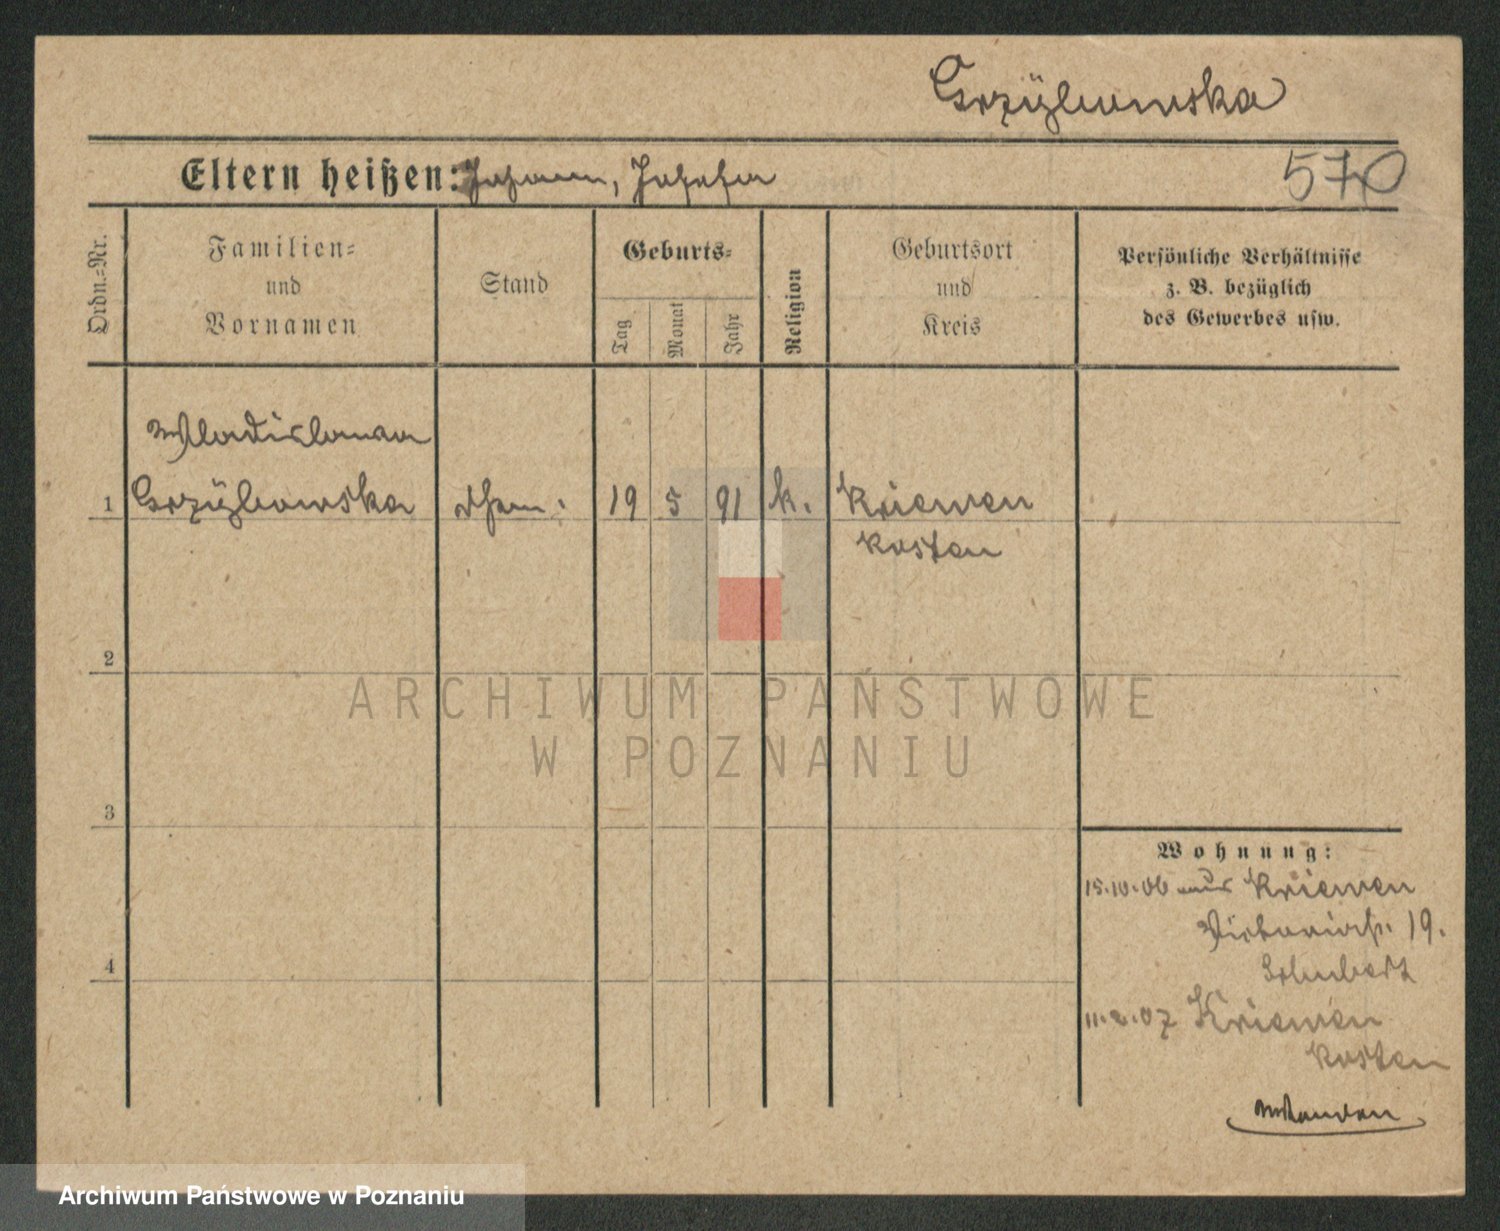 Grzÿbowska
Eltern heißen: Johann, Josefa
570
Ordn.-Nr.
Familien-
und
Vornamen
Stand
Geburts-
Tag
Monat
Jahr
Religion
Geburtsort
und
Kreis
Persönliche Verhältnisse
z. B. bezüglich
des Gewerbes usw.
Wladislawa
1 Grzÿbowska 19 5 91 k. Kriewen
Kosten
2
ARCHIWUM PAŃSTWOWE
W POZNANIU
3
Wohnung:
15.10.06 aus Kriewen
Victoriastr. 19.
Schubert
4
11.2.07 Kriewen
Kosten
Archiwum Państwowe w Poznaniu